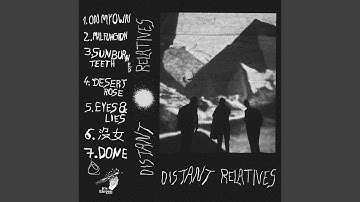 1. ON MY OWN
2. MALFUNCTION
3. SUNBURN
TEETH
4. DESERT
ROSE
5. EYES &
LIES
6. 没女
7. DONE
DISTANT RELATIVES
DISTANT RELATIVES